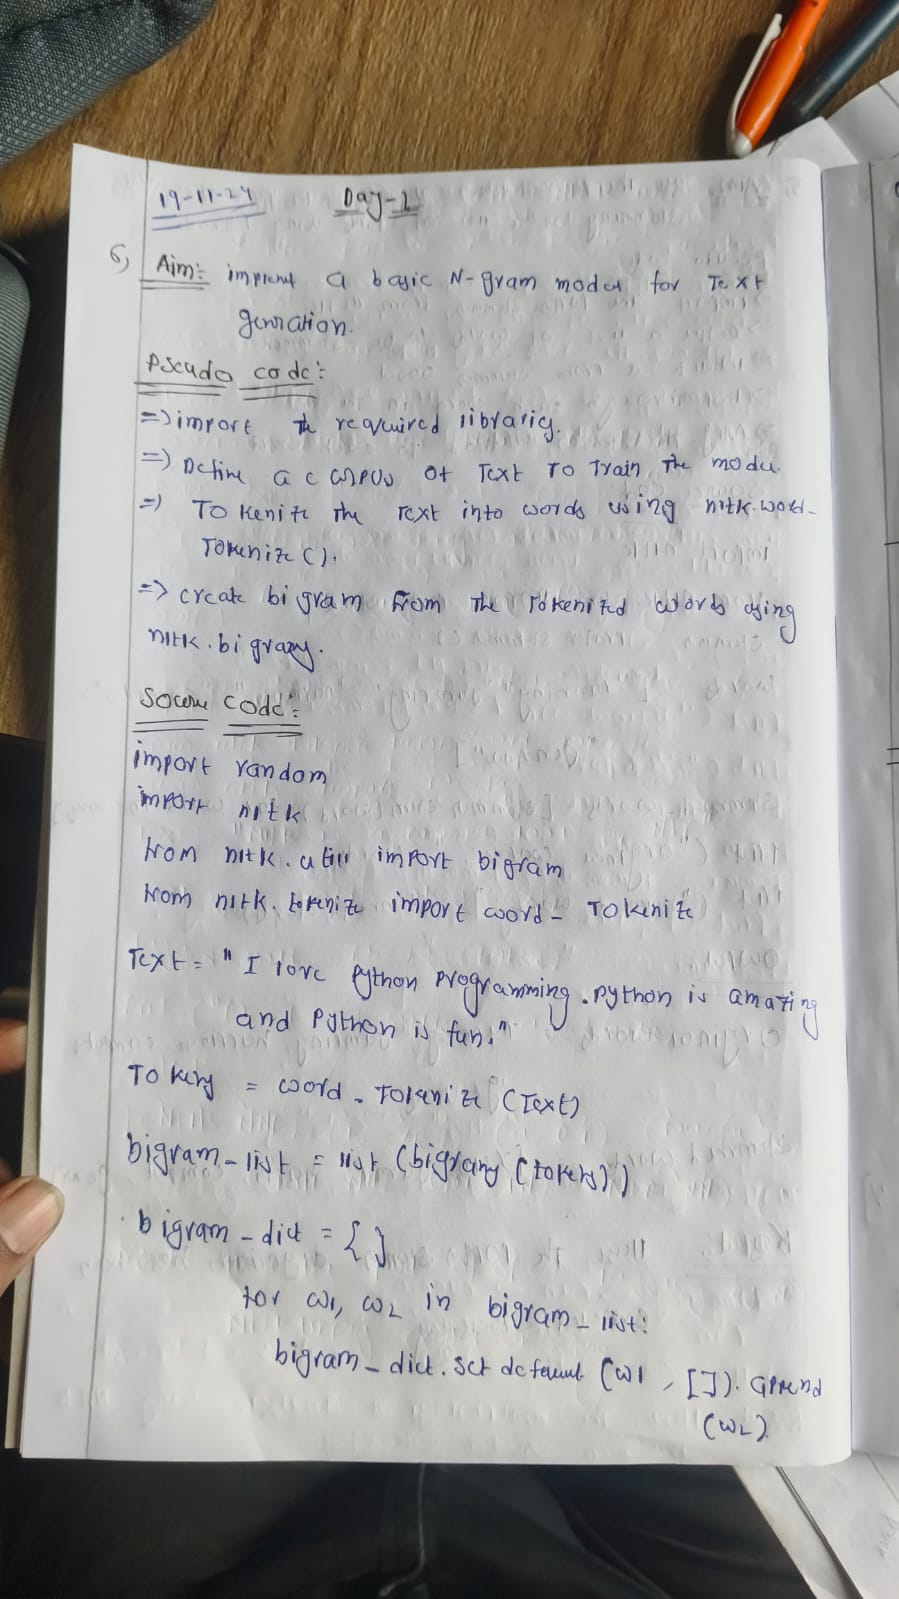 19-11-24 Day-2
6) Aim:- implent a basic N-gram model for Text
genration.
Pseudo code:
=> import the required libraries.
=> Define a corpus of Text To Train The model.
=> Tokenize The Text into words using nltk.word_
Tokenize().
=> create bigram from The Tokenized words using
nltk.bigrams.
code:
import random
import nltk
from nltk.util import bigram
from nltk.tokenize import word_Tokenize
Text = "I love Python Programming. Python is amazing
and Python is fun."
Tokens = word_Tokenize (Text)
bigram_list = list (bigrams (tokens))
bigram_dict = { }
for w1, w2 in bigram_list:
bigram_dict.setdefault (w1, []).append
(w2)